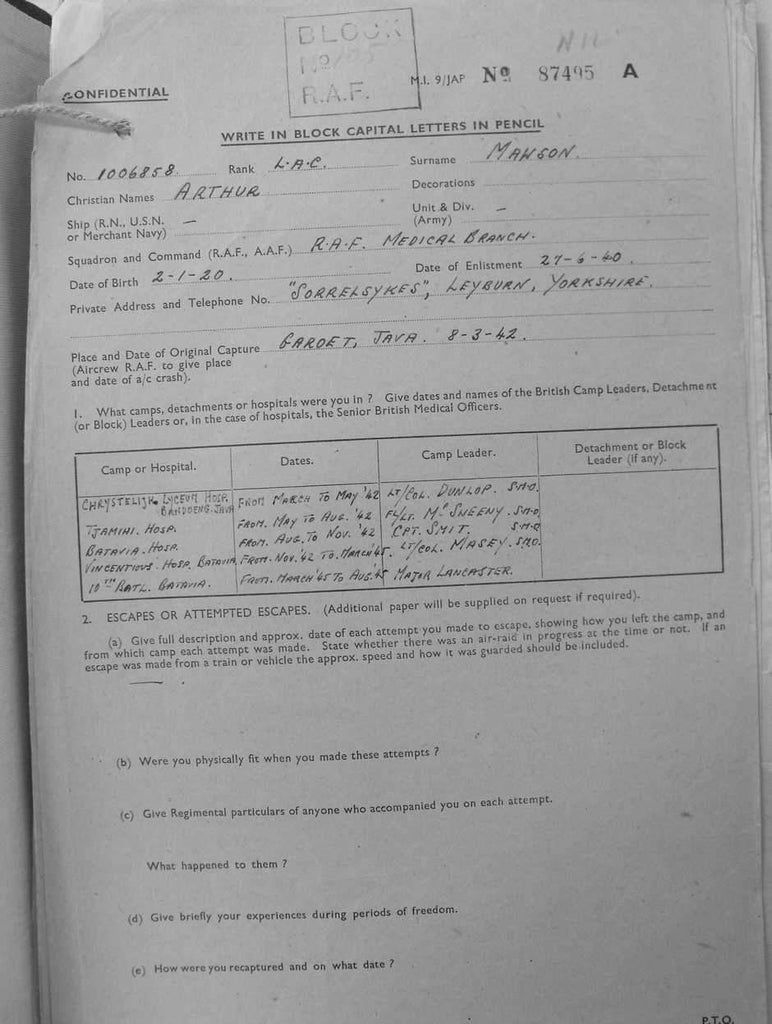 BLOCK
R.A.F.
NIL
CONFIDENTIAL
M.I. 9/JAP No 87495 A
WRITE IN BLOCK CAPITAL LETTERS IN PENCIL
No. 1006858. Rank L.A.C. Surname MAWSON.
Christian Names ARTHUR Decorations
Ship (R.N., U.S.N. — Unit & Div. —
or Merchant Navy) (Army)
Squadron and Command (R.A.F., A.A.F.) R.A.F. MEDICAL BRANCH.
Date of Birth 2-1-20. Date of Enlistment 27-6-40.
Private Address and Telephone No. "SORRELSYKES", LEYBURN, YORKSHIRE.
Place and Date of Original Capture GAROET, JAVA. 8-3-42.
(Aircrew R.A.F. to give place
and date of a/c crash).
1. What camps, detachments or hospitals were you in ? Give dates and names of the British Camp Leaders, Detachment
(or Block) Leaders or, in the case of hospitals, the Senior British Medical Officers.
Camp or Hospital. Dates. Camp Leader. Detachment or Block
Leader (if any).
CHRYSTELIJK LYCEUM HOSP. FROM MARCH TO MAY '42 LT/COL. DUNLOP. S.M.O.
BANDOENG. JAVA
TJAMIHI. HOSP. FROM. MAY TO AUG. '42 FL/LT. McSHEENY. S.M.O.
BATAVIA. HOSP. FROM. AUG. TO NOV. '42 CPT. SMIT. S.M.O
VINCENTIOUS. HOSP. BATAVIA. FROM. NOV. '42 TO. MARCH '45. LT/COL. MASEY. S.M.O.
10TH BATL. BATAVIA. FROM. MARCH '45 TO AUG. '45 MAJOR LANCASTER.
2. ESCAPES OR ATTEMPTED ESCAPES. (Additional paper will be supplied on request if required).
(a) Give full description and approx. date of each attempt you made to escape, showing how you left the camp, and
from which camp each attempt was made. State whether there was an air-raid in progress at the time or not. If an
escape was made from a train or vehicle the approx. speed and how it was guarded should be included.
—
(b) Were you physically fit when you made these attempts ?
(c) Give Regimental particulars of anyone who accompanied you on each attempt.
What happened to them ?
(d) Give briefly your experiences during periods of freedom.
(e) How were you recaptured and on what date ?
P.T.O.